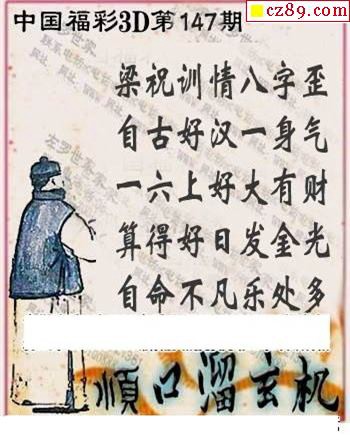 cz89.com
中国福彩3D第147期
梁祝训情八字歪
自古好汉一身气
一六上好大有财
算得好日发金光
自命不凡乐处多
顺口溜玄机